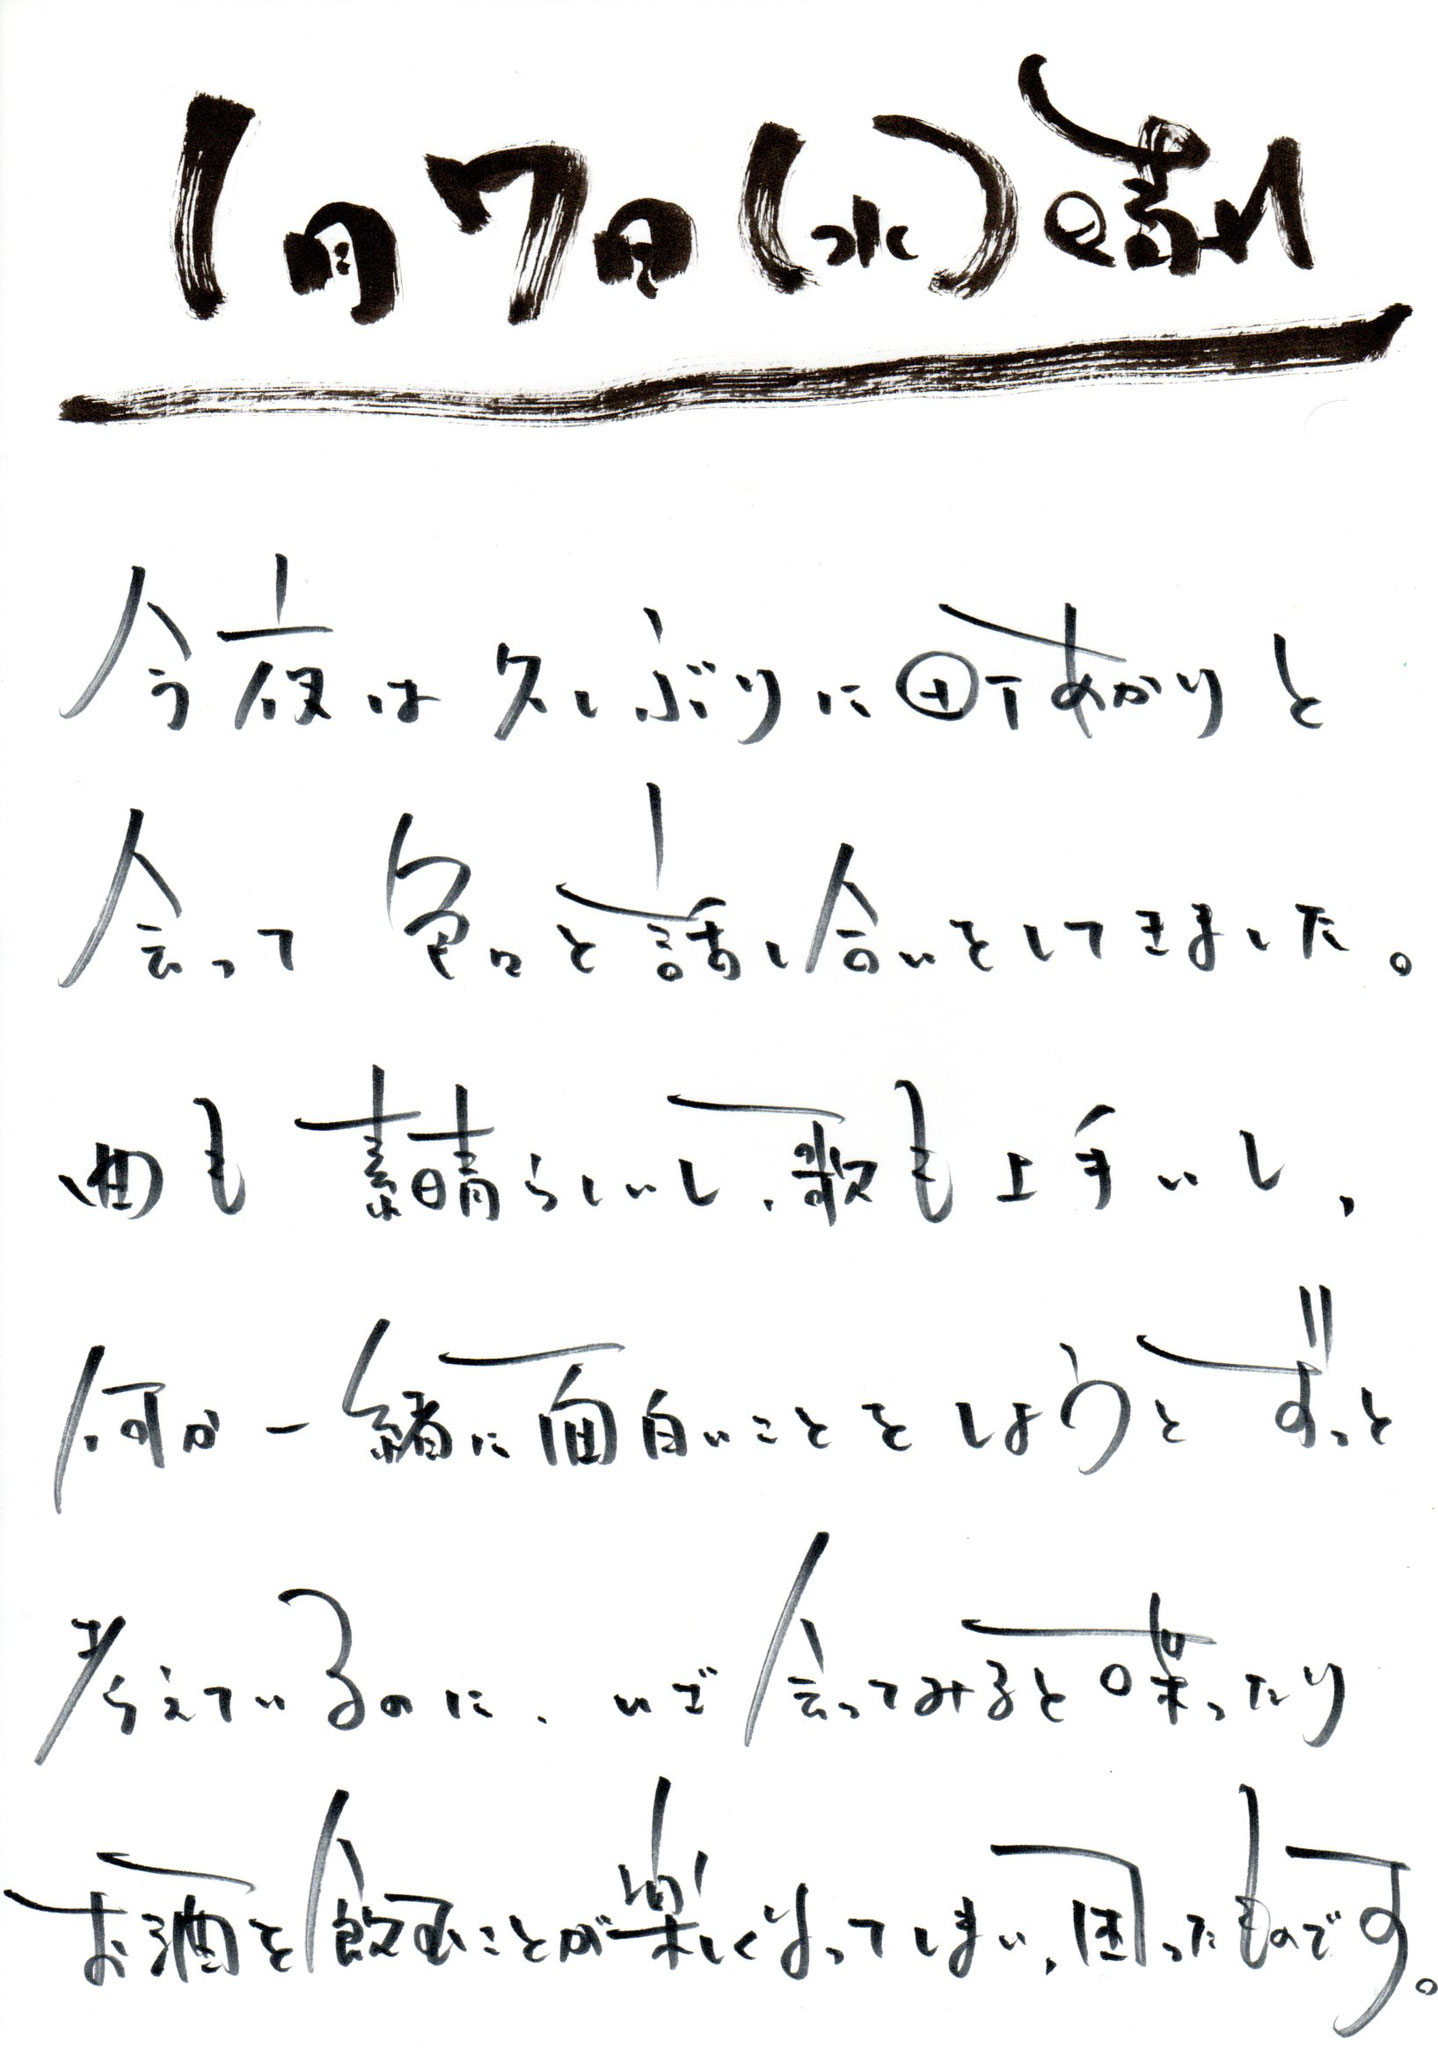 1月7日(水)
今夜は久しぶりに町あかりと
会って色々と話し合いをしてきました。
曲も素晴らしいし、歌も上手いし、
何か一緒に面白いことをしようとずっと
考えているのに、いざ会ってみると喋ったり
お酒を飲むことが楽しくなってしまい、困ったものです。